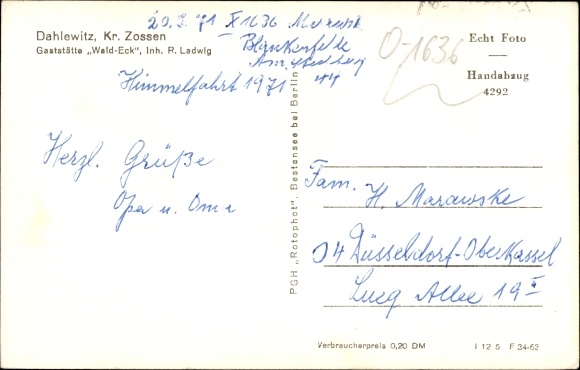 Dahlewitz, Kr. Zossen
Gaststätte „Wald-Eck“, Inh. R. Ladwig
1636
Blankenfelde
Himmelfahrt 1971
Herzl. Grüße
Opa u. Oma
PGH „Rotophot“, Bestensee bei Berlin
O-1636
Echt Foto
—
Handabzug
4292
Fam. H. Marawske
04 Düsseldorf-Oberkassel
Lueg Allee 19 II
Verbraucherpreis 0,20 DM
I 12 5 F 34-63